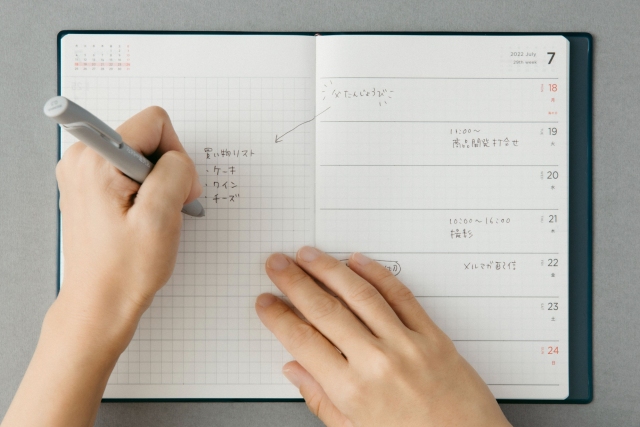 買い物リスト
・ケーキ
・ワイン
・チーズ
2022 July
7
18
父たんじょうび
19
11:00〜
商品開発打合せ
20
21
10:00〜16:00
撮影
22
メルマガ配信
23
24